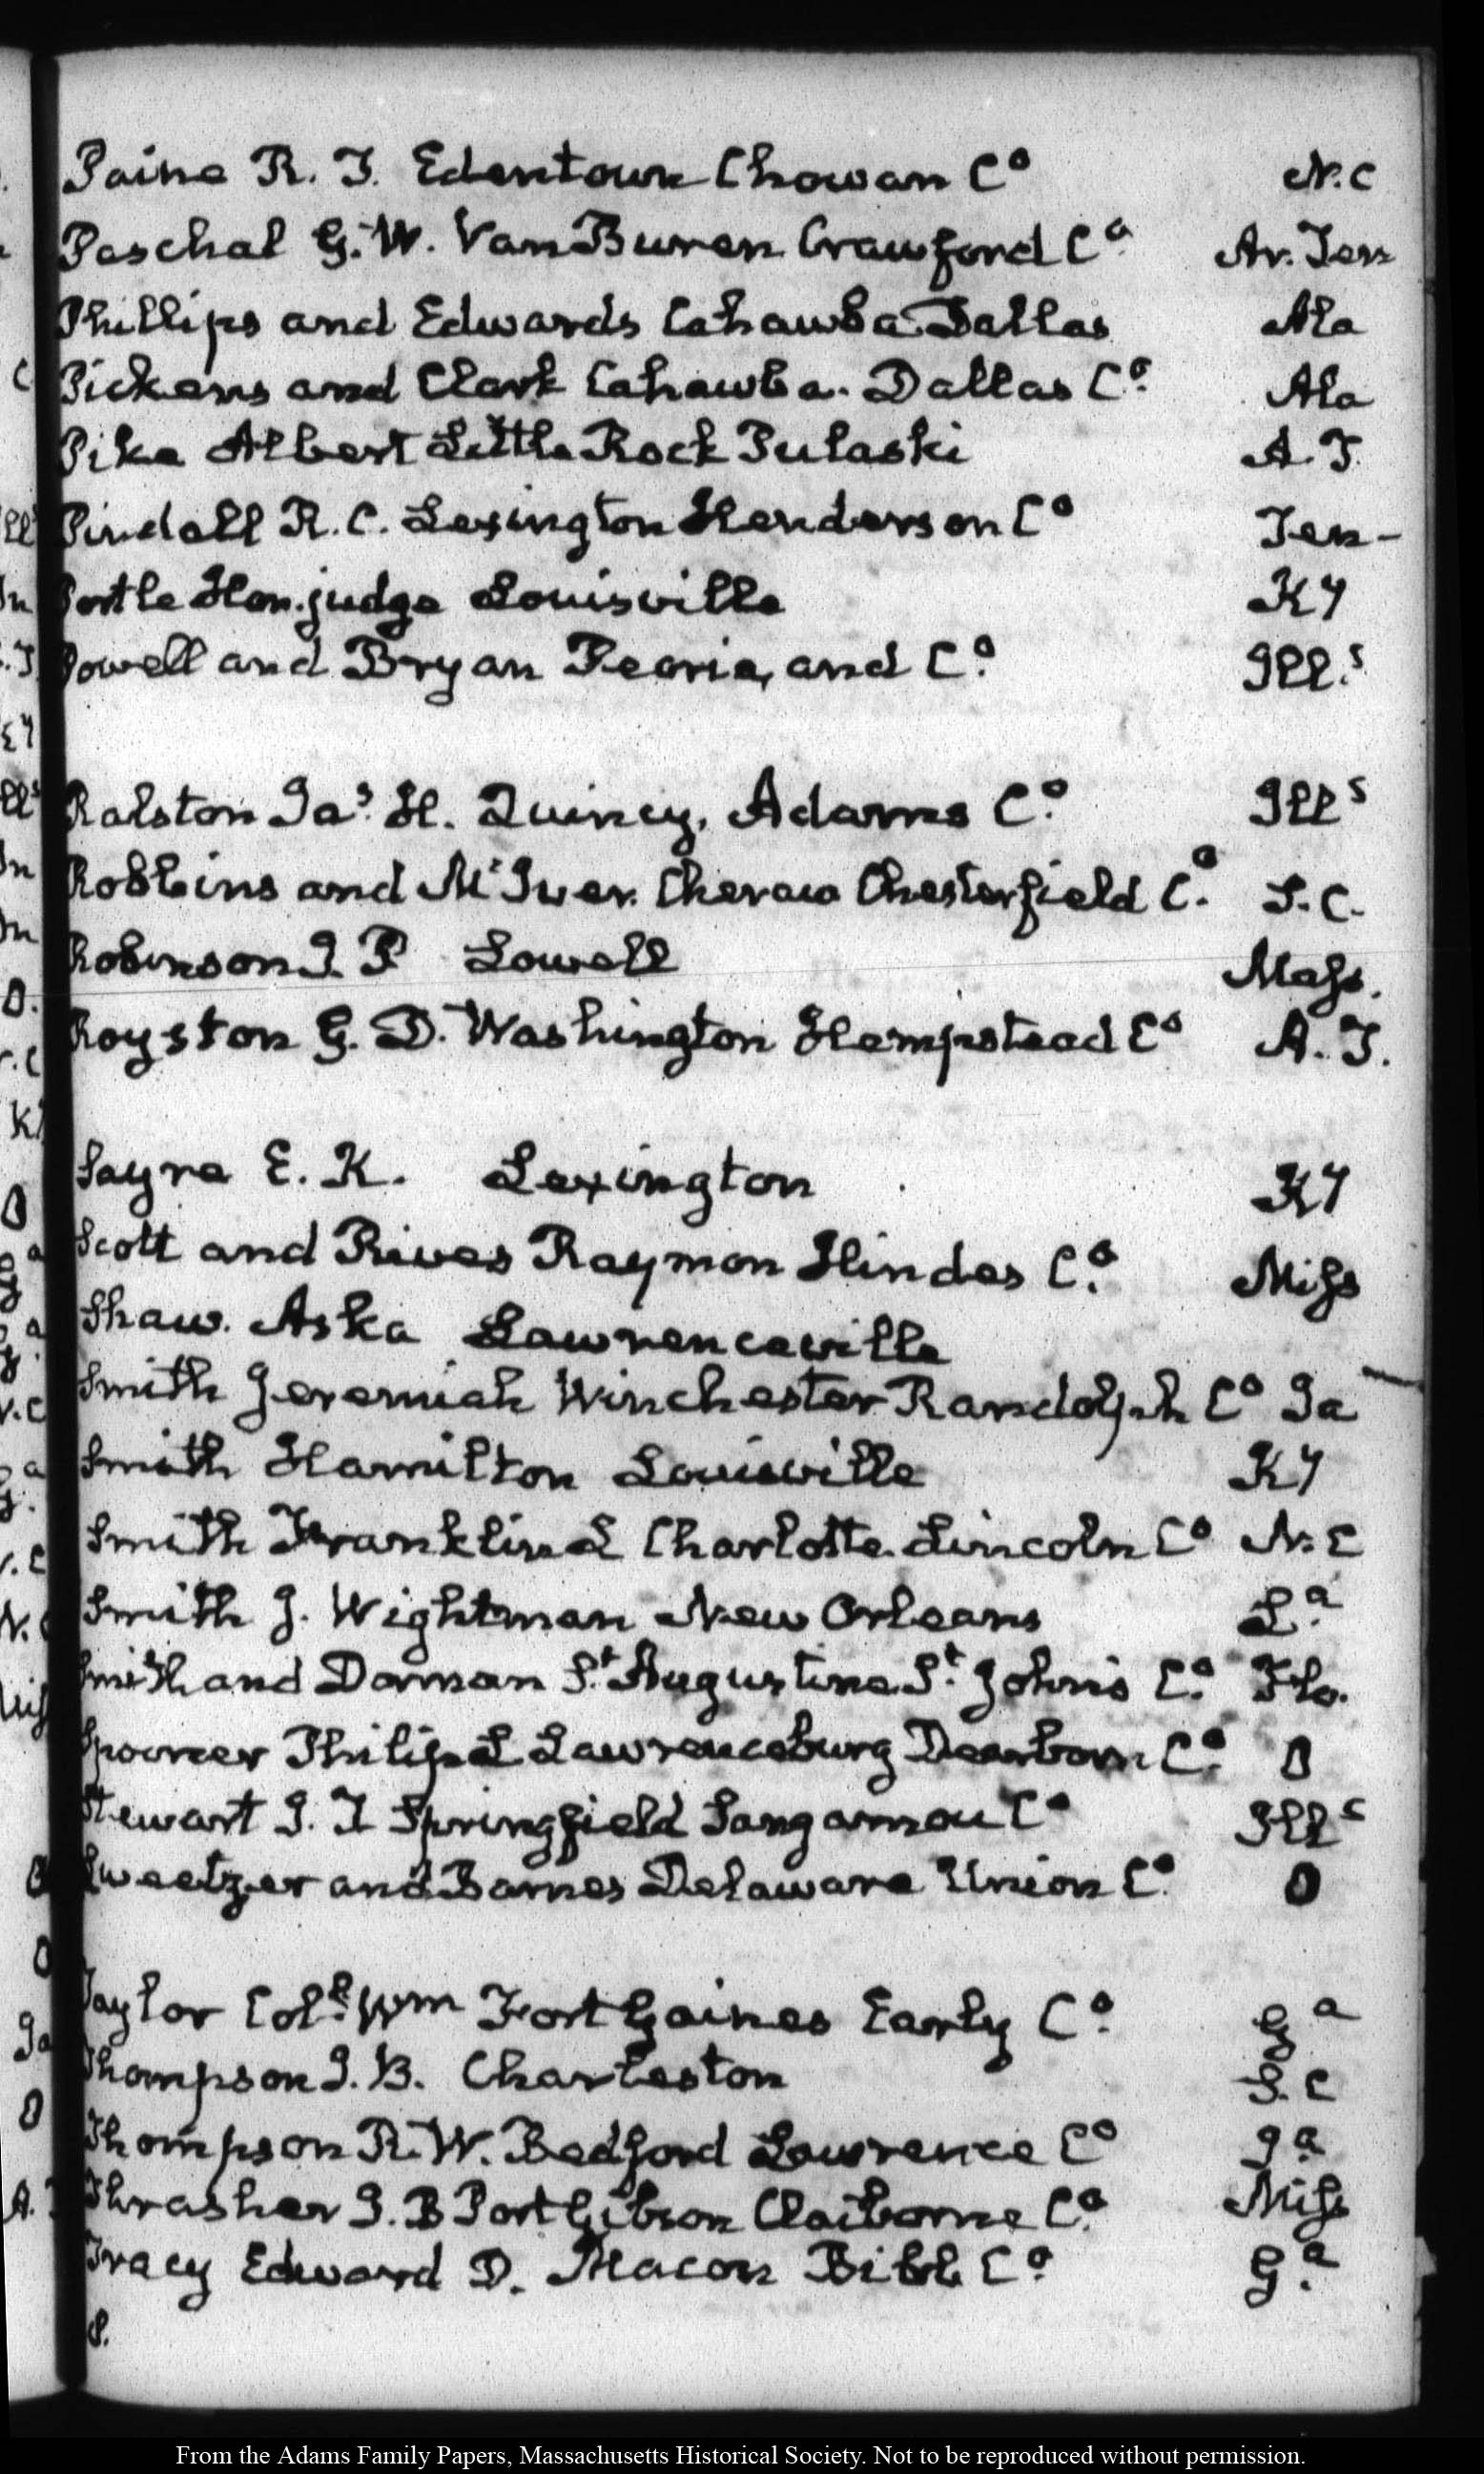 Paine R. T. Edentown Chowan Co N.C
Paschal G. W. Van Buren Crawford Co. Ar. Ter
Phillips and Edwards Cahawba Dallas Ala
Pickens and Clark Cahawba. Dallas Co. Ala
Pike Albert Little Rock Pulaski A. T.
Pindall R. C. Lexington Henderson Co Ten-
Portle Hon. judge Louisville Ky
Powell and Bryan Peoria, and Co. Ill.s
Ralston Jas. H. Quincy, Adams Co. Ills
Robbins and McIver. Cheraw Chesterfield Co. S. C.
Robinson J. P Lowell Mass.
Royston G. D. Washington Hempstead Co A. T.
Sayre E. K. Lexington Ky
Scott and Rives Raymon Hindes Co. Miss
Shaw. Aska Lawrenceville
Smith Jeremiah Winchester Randolph Co Ia
Smith Hamilton Louisville Ky
Smith Franklin L Charlotte Lincoln Co N. C
Smith J. Wightman New Orleans La.
Smith and Dornan St. Augustine St. John's Co. Flo.
Spooner Philip L Lawrenceburg Dearborn Co. O
Stewart J. T Springfield Sangamou Co Ills
Sweetzer and Barnes Delaware Union Co. O
Taylor Coll. Wm Fort Gaines Early Co. Ga
Thompson J. B. Charleston S. C
Thompson R. W. Bedford Lawrence Co Ia
Thrasher J. B Port Gibson Claiborne Co. Miss
Tracy Edward D. Macon Bibb Co. Ga.
From the Adams Family Papers, Massachusetts Historical Society. Not to be reproduced without permission.